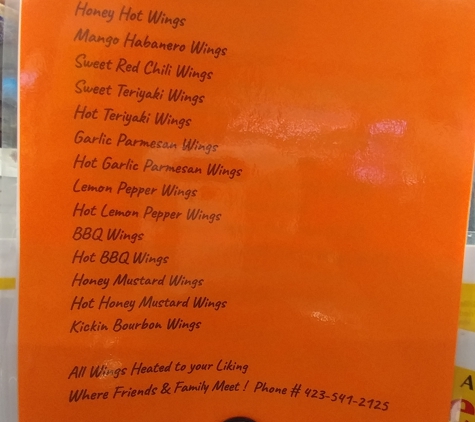 Honey Hot Wings
Mango Habanero Wings
Sweet Red Chili Wings
Sweet Teriyaki Wings
Hot Teriyaki Wings
Garlic Parmesan Wings
Hot Garlic Parmesan Wings
Lemon Pepper Wings
Hot Lemon Pepper Wings
BBQ Wings
Hot BBQ Wings
Honey Mustard Wings
Hot Honey Mustard Wings
Kickin Bourbon Wings
All Wings Heated to your Liking
Where Friends & Family Meet ! Phone # 423-541-2125
A